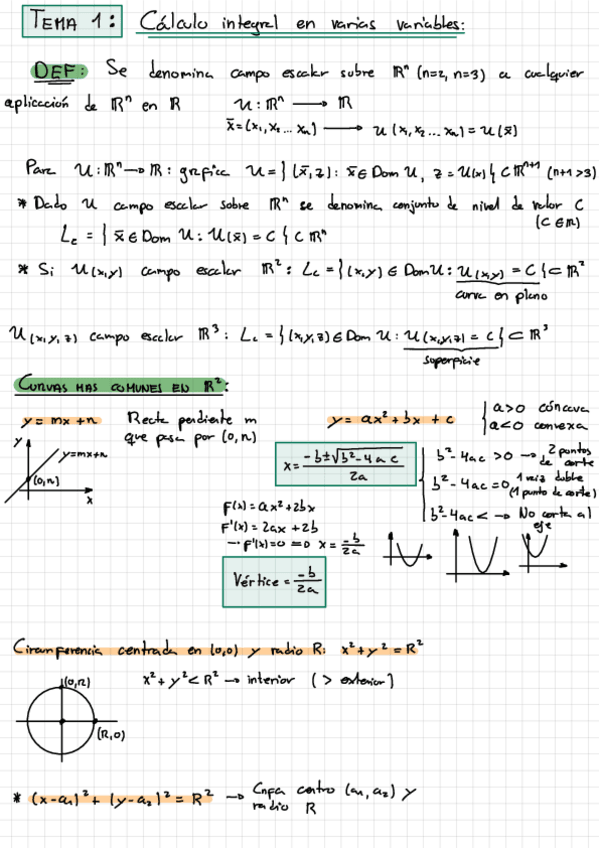 TEMA 1: Cálculo integral en varias variables:
DEF: Se denomina campo escalar sobre ℝⁿ (n=2, n=3) a cualquier
aplicación de ℝⁿ en ℝ   U: ℝⁿ ⟶ ℝ
x̄=(x₁, x₂ ... xₙ) ⟶ U(x₁, x₂ ... xₙ) = U(x̄)
Para U: ℝⁿ → ℝ: grafica U = { (x̄, z): x̄ ∈ Dom U, z = U(x) { ⊂ ℝⁿ⁺¹ (n+1>3)
* Dado U campo escalar sobre ℝⁿ se denomina conjunto de nivel de valor C
(C ∈ ℝ)
L_c = { x̄ ∈ Dom U: U(x̄) = C { ⊂ ℝⁿ
* Si U(x,y) campo escalar ℝ²: L_c = { (x,y) ∈ Dom U: U(x,y) = C { ⊂ ℝ²
curva en plano
U(x,y,z) campo escalar ℝ³: L_c = { (x,y,z) ∈ Dom U: U(x,y,z) = C { ⊂ ℝ³
superficie
CURVAS MAS COMUNES EN ℝ²:
y = mx + n   Recta pendiente m
que pasa por (0,n)
y
y=mx+n
(0,n)
x
y = ax² + bx + c   { a>0 cóncava
a<0 convexa
x = (-b ± √(b²-4ac)) / 2a
b²-4ac > 0 → 2 puntos de corte
b²-4ac = 0, 1 raiz doble (1 punto de corte)
b²-4ac < → No corta al eje
F(x) = ax² + 2bx
F'(x) = 2ax + 2b
→ F'(x)=0 ⇒ x = -b/2a
Vértice = -b/2a
Circunferencia centrada en (0,0) y radio R: x² + y² = R²
x² + y² < R² → interior ( > exterior)
(0,R)
(R,0)
* (x-a₁)² + (y-a₂)² = R² → Cnfa centro (a₁, a₂) y
radio R